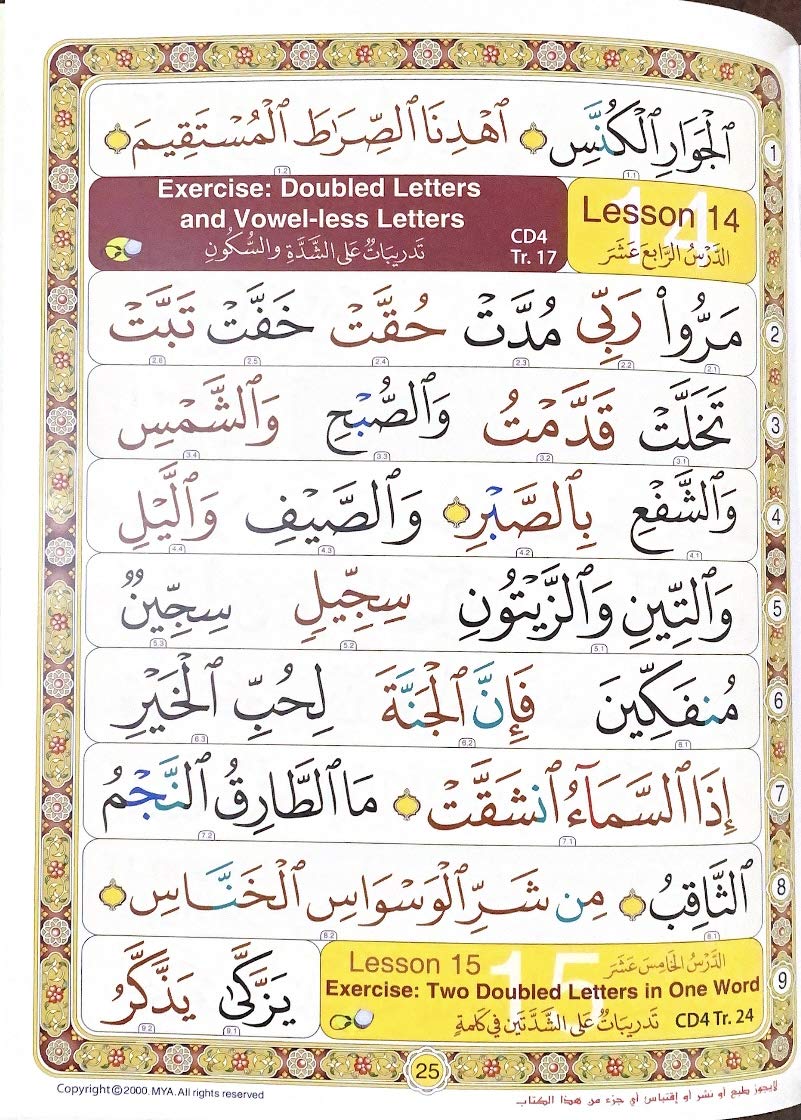 ٱلْجَوَارِ ٱلْكُنَّسِ ٱهْدِنَا ٱلصِّرَٰطَ ٱلْمُسْتَقِيمَ 1
1.1 1.2
Lesson 14
ٱلدَّرْسُ الرَّابِعَ عَشَرَ
14
Exercise: Doubled Letters
and Vowel-less Letters
تَدْرِيبَاتٌ عَلَى الشَّدَّةِ وَالسُّكُونِ
CD4
Tr. 17
مَرُّوا۟ رَبِّى مُدَّتْ حُقَّتْ خَفَّتْ تَبَّتْ 2
2.1 2.2 2.3 2.4 2.5 2.6
تَخَلَّتْ قَدَّمْتُ وَٱلصُّبْحِ وَٱلشَّمْسِ 3
3.1 3.2 3.3 3.4
وَٱلشَّفْعِ بِٱلصَّبْرِ وَٱلصَّيْفِ وَٱلَّيْلِ 4
4.1 4.2 4.3 4.4
وَٱلتِّينِ وَٱلزَّيْتُونِ سِجِّيلٍ سِجِّينٌ 5
5.1 5.2 5.3
مُنفَكِّينَ فَإِنَّ ٱلْجَنَّةَ لِحُبِّ ٱلْخَيْرِ 6
6.1 6.2 6.3
إِذَا ٱلسَّمَآءُ ٱنشَقَّتْ مَا ٱلطَّارِقُ ٱلنَّجْمُ 7
7.1 7.2
ٱلثَّاقِبُ مِن شَرِّ ٱلْوَسْوَاسِ ٱلْخَنَّاسِ 8
8.1 8.2
Lesson 15 الدَّرْسُ الْخَامِسَ عَشَرَ
15
Exercise: Two Doubled Letters in One Word
تَدْرِيبَاتٌ عَلَى الشَّدَّتَيْنِ فِي كَلِمَةٍ CD4 Tr. 24
يَزَّكَّىٰ يَذَّكَّرُ 9
9.1 9.2
25
Copyright©2000. MYA. All rights reserved
لايجوز طبع أو نشر أو إقتباس أي جزء من هذا الكتاب